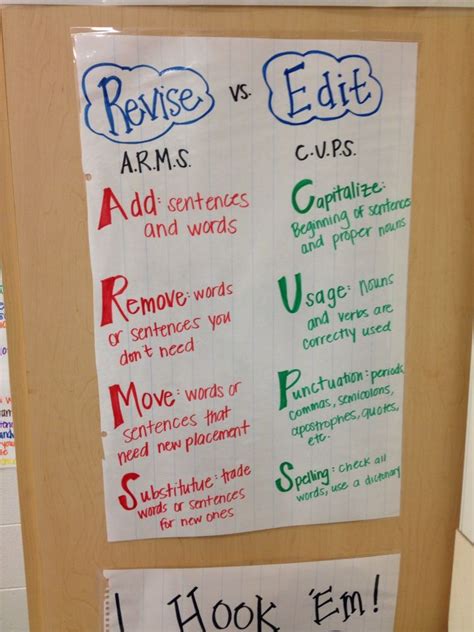 Revise vs. Edit
A.R.M.S.
Add: sentences
and words
Remove: words
or sentences you
don't need
Move: words or
sentences that
need new placement
Substitutue: trade
words or sentences
for new ones
C.U.P.S.
Capitalize:
Beginning of sentence
and proper nouns
Usage: nouns
and verbs are
correctly used
Punctuation: periods,
commas, semicolons,
apostrophes, quotes,
etc.
Spelling: check all
words, use a dictionary
Hook 'Em!